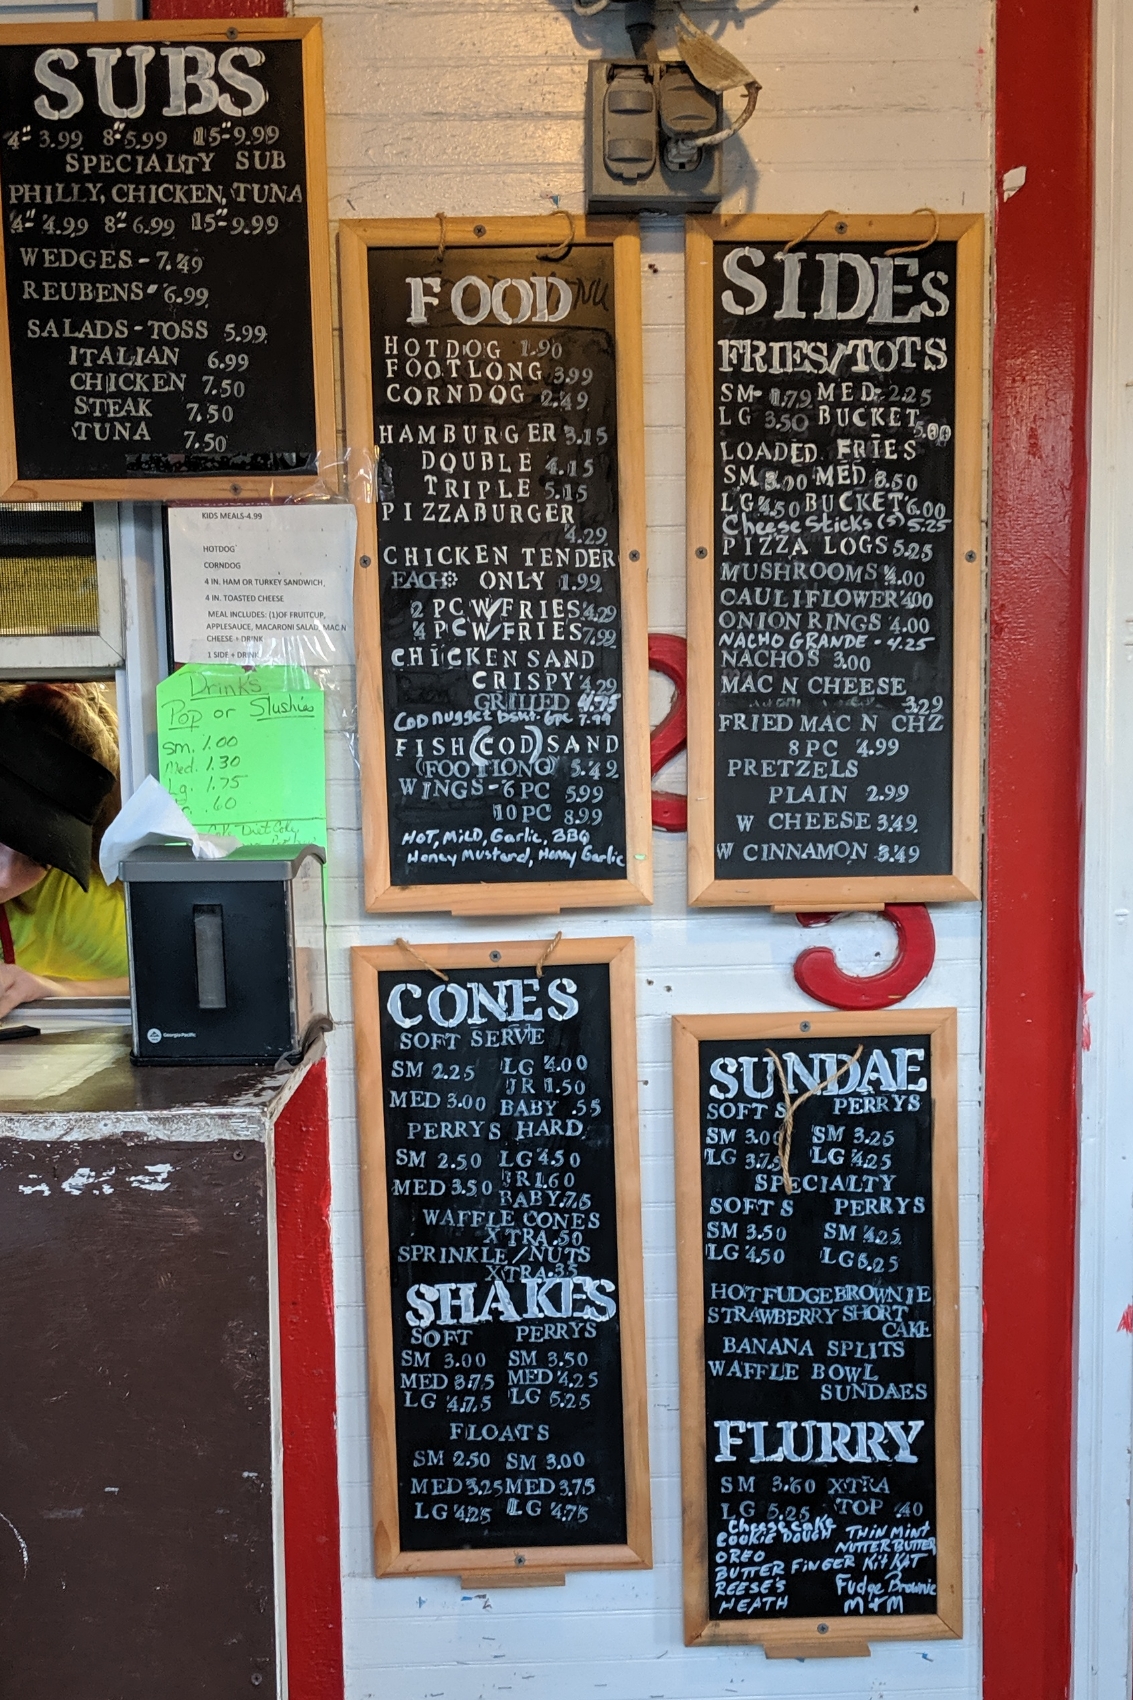 SUBS
4" 3.99 8" 5.99 15" 9.99
SPECIALTY SUB
PHILLY, CHICKEN, TUNA
4" 4.99 8" 6.99 15" 9.99
WEDGES - 7.49
REUBENS - 6.99
SALADS - TOSS 5.99
ITALIAN 6.99
CHICKEN 7.50
STEAK 7.50
TUNA 7.50
KIDS MEALS-4.99
HOTDOG
CORNDOG
4 IN. HAM OR TURKEY SANDWICH,
4 IN. TOASTED CHEESE
MEAL INCLUDES: (1)OF FRUITCUP,
APPLESAUCE, MACARONI SALAD, MAC N
CHEESE + DRINK
1 SIDE + DRINK
Drinks
Pop or Slushies
Sm. 1.00
Med. 1.30
Lg. 1.75
.60
Diet Coke
Georgia-Pacific
FOOD
HOTDOG 1.90
FOOTLONG 3.99
CORNDOG 2.49
HAMBURGER 3.15
DOUBLE 4.15
TRIPLE 5.15
PIZZABURGER
4.29
CHICKEN TENDER
EACH ONLY 1.99
2 PC W/FRIES 4.29
4 PC W/FRIES 7.99
CHICKEN SAND
CRISPY 4.29
GRILLED 4.75
COD nugget bskt. 6pc 7.99
FISH (COD) SAND
(FOOTLONG) 5.49
WINGS - 6 PC 5.99
10 PC 8.99
HOT, MILD, Garlic, BBQ
Honey Mustard, Honey Garlic
SIDES
FRIES/TOTS
SM- 1.79 MED- 2.25
LG 3.50 BUCKET
5.00
LOADED FRIES
SM 3.00 MED 3.50
LG 4.50 BUCKET 6.00
Cheese Sticks (5) 5.25
PIZZA LOGS 5.25
MUSHROOMS 4.00
CAULIFLOWER 4.00
ONION RINGS 4.00
NACHO GRANDE - 4.25
NACHOS 3.00
MAC N CHEESE
3.29
FRIED MAC N CHZ
8 PC 4.99
PRETZELS
PLAIN 2.99
W CHEESE 3.49
W CINNAMON 3.49
2
5
CONES
SOFT SERVE
SM 2.25 LG 4.00
JR 1.50
MED 3.00 BABY .55
PERRYS HARD
SM 2.50 LG 4.50
JR 1.60
MED 3.50 BABY .75
WAFFLE CONES
XTRA .50
SPRINKLE/NUTS
XTRA .35
SHAKES
SOFT PERRYS
SM 3.00 SM 3.50
MED 3.75 MED 4.25
LG 4.75 LG 5.25
FLOATS
SM 2.50 SM 3.00
MED 3.25 MED 3.75
LG 4.25 LG 4.75
SUNDAE
SOFT S PERRYS
SM 3.00 SM 3.25
LG 3.75 LG 4.25
SPECIALTY
SOFT S PERRYS
SM 3.50 SM 4.25
LG 4.50 LG 5.25
HOT FUDGE BROWNIE
STRAWBERRY SHORT
CAKE
BANANA SPLITS
WAFFLE BOWL
SUNDAES
FLURRY
SM 3.60 XTRA
LG 5.25 TOP .40
Cheesecake
COOKIE DOUGH THIN MINT
OREO NUTTER BUTTER
BUTTER FINGER Kit KAT
REESE'S Fudge Brownie
HEATH M+M